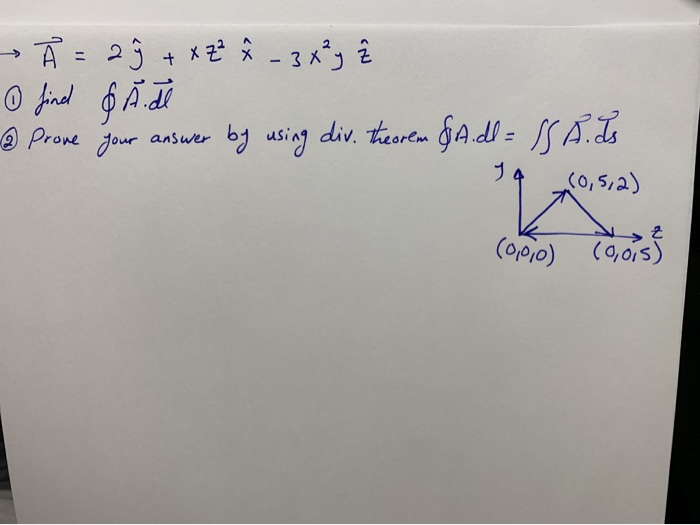 → A⃗ = 2ŷ + xz² x̂ - 3x²y ẑ
① find ∮ A⃗.dl⃗
② Prove your answer by using div. theorem ∮A.dl = ∬ A⃗.ds⃗
y
(0,5,2)
z
(0,0,0) (0,0,5)